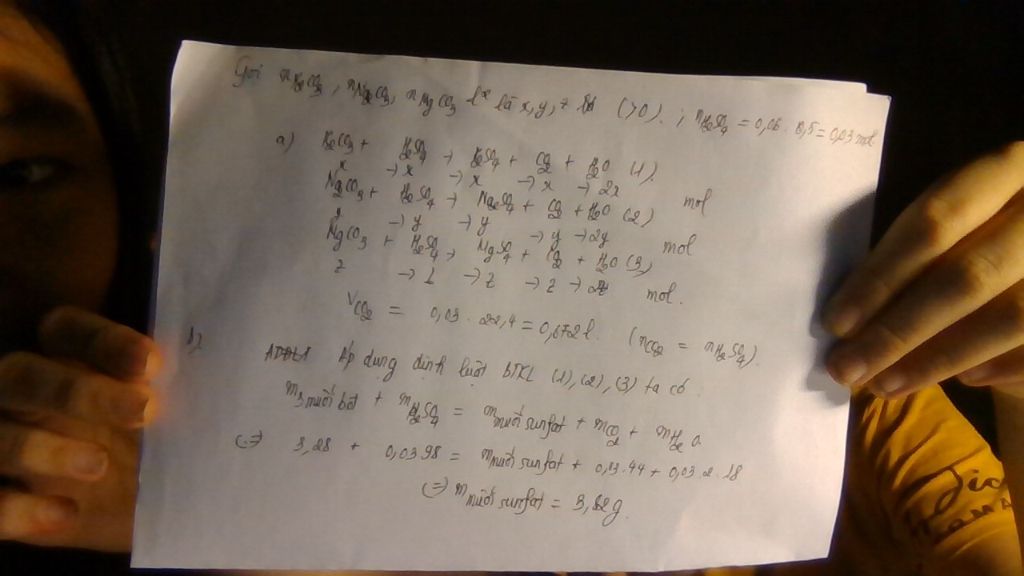 Gọi nK2CO3, nNa2CO3, nMgCO3 lx là x, y, z (>0). ; nH2SO4 = 0,06. 0,5 = 0,03 mol
a) K2CO3 + H2SO4 → K2SO4 + CO2 + H2O (1)
x → x → x → x → 2x mol
Na2CO3 + H2SO4 → Na2SO4 + CO2 + H2O (2)
y → y → y → y → 2y mol
MgCO3 + H2SO4 → MgSO4 + CO2 + H2O (3)
z → z → z → z → 2z mol.
VCO2 = 0,03. 22,4 = 0,672 l. (nCO2 = nH2SO4).
b) Áp dụng định luật BTKL (1), (2), (3) ta có
m3 muối bđ + mH2SO4 = mmuối sunfat + mCO2 + mH2O
(=) 3,28 + 0,03.98 = mmuối sunfat + 0,03.44 + 0,03.2.18
(=) mmuối sunfat = 3,82g.